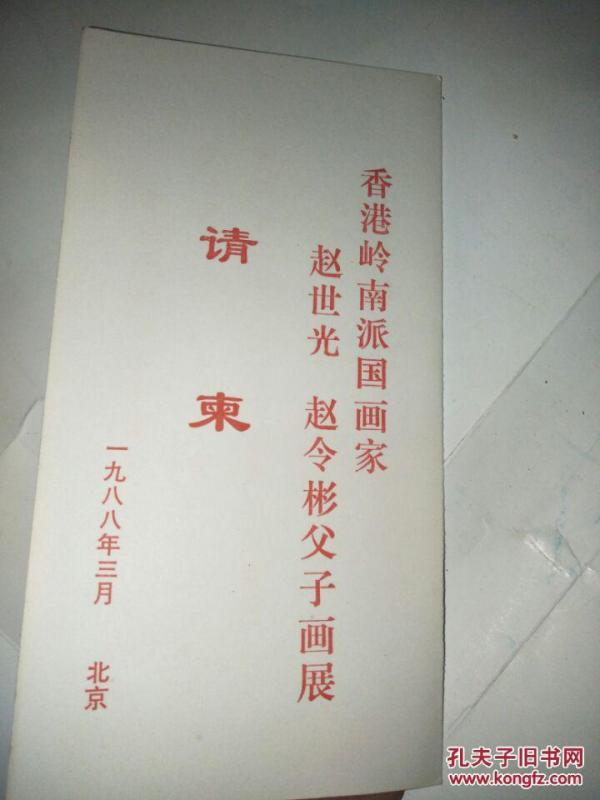 香港岭南派国画家
赵世光 赵令彬父子画展
请柬
一九八八年三月 北京
孔夫子旧书网
www.kongfz.com